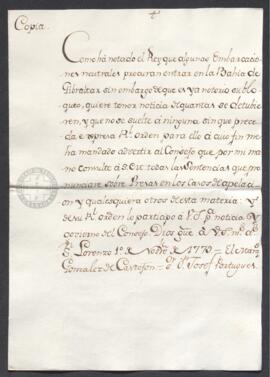 Copia.
Como há notado el Rey que algunas Embarcacio
nes neutrales procuran entrar en la Bahia de
Gibraltar sin embargo de que es ya notorio su blo
queo, quiere tener noticia de quantas se detubie
ren, y que no se suelte á ninguna, sin que prece
da expresa Rl. orden para ello á cuio fin me
ha mandado advertir al Consejo que por mi ma
no consulte á S.M. todas las Sentencias que
pronunciare sobre Presas en los casos de apelaci
on y qualesquiera otros de esta materia: Y
de su Rl. orden lo participo á V.S. pa. noticia y
govierno del Consejo Dios gue. á V.S. ms. as.
Sn. Lorenzo 1º. de Novre. de 1779 = El Marqs.
Gonzalez de Castejon = Sr. Dn. Josef Portugues.